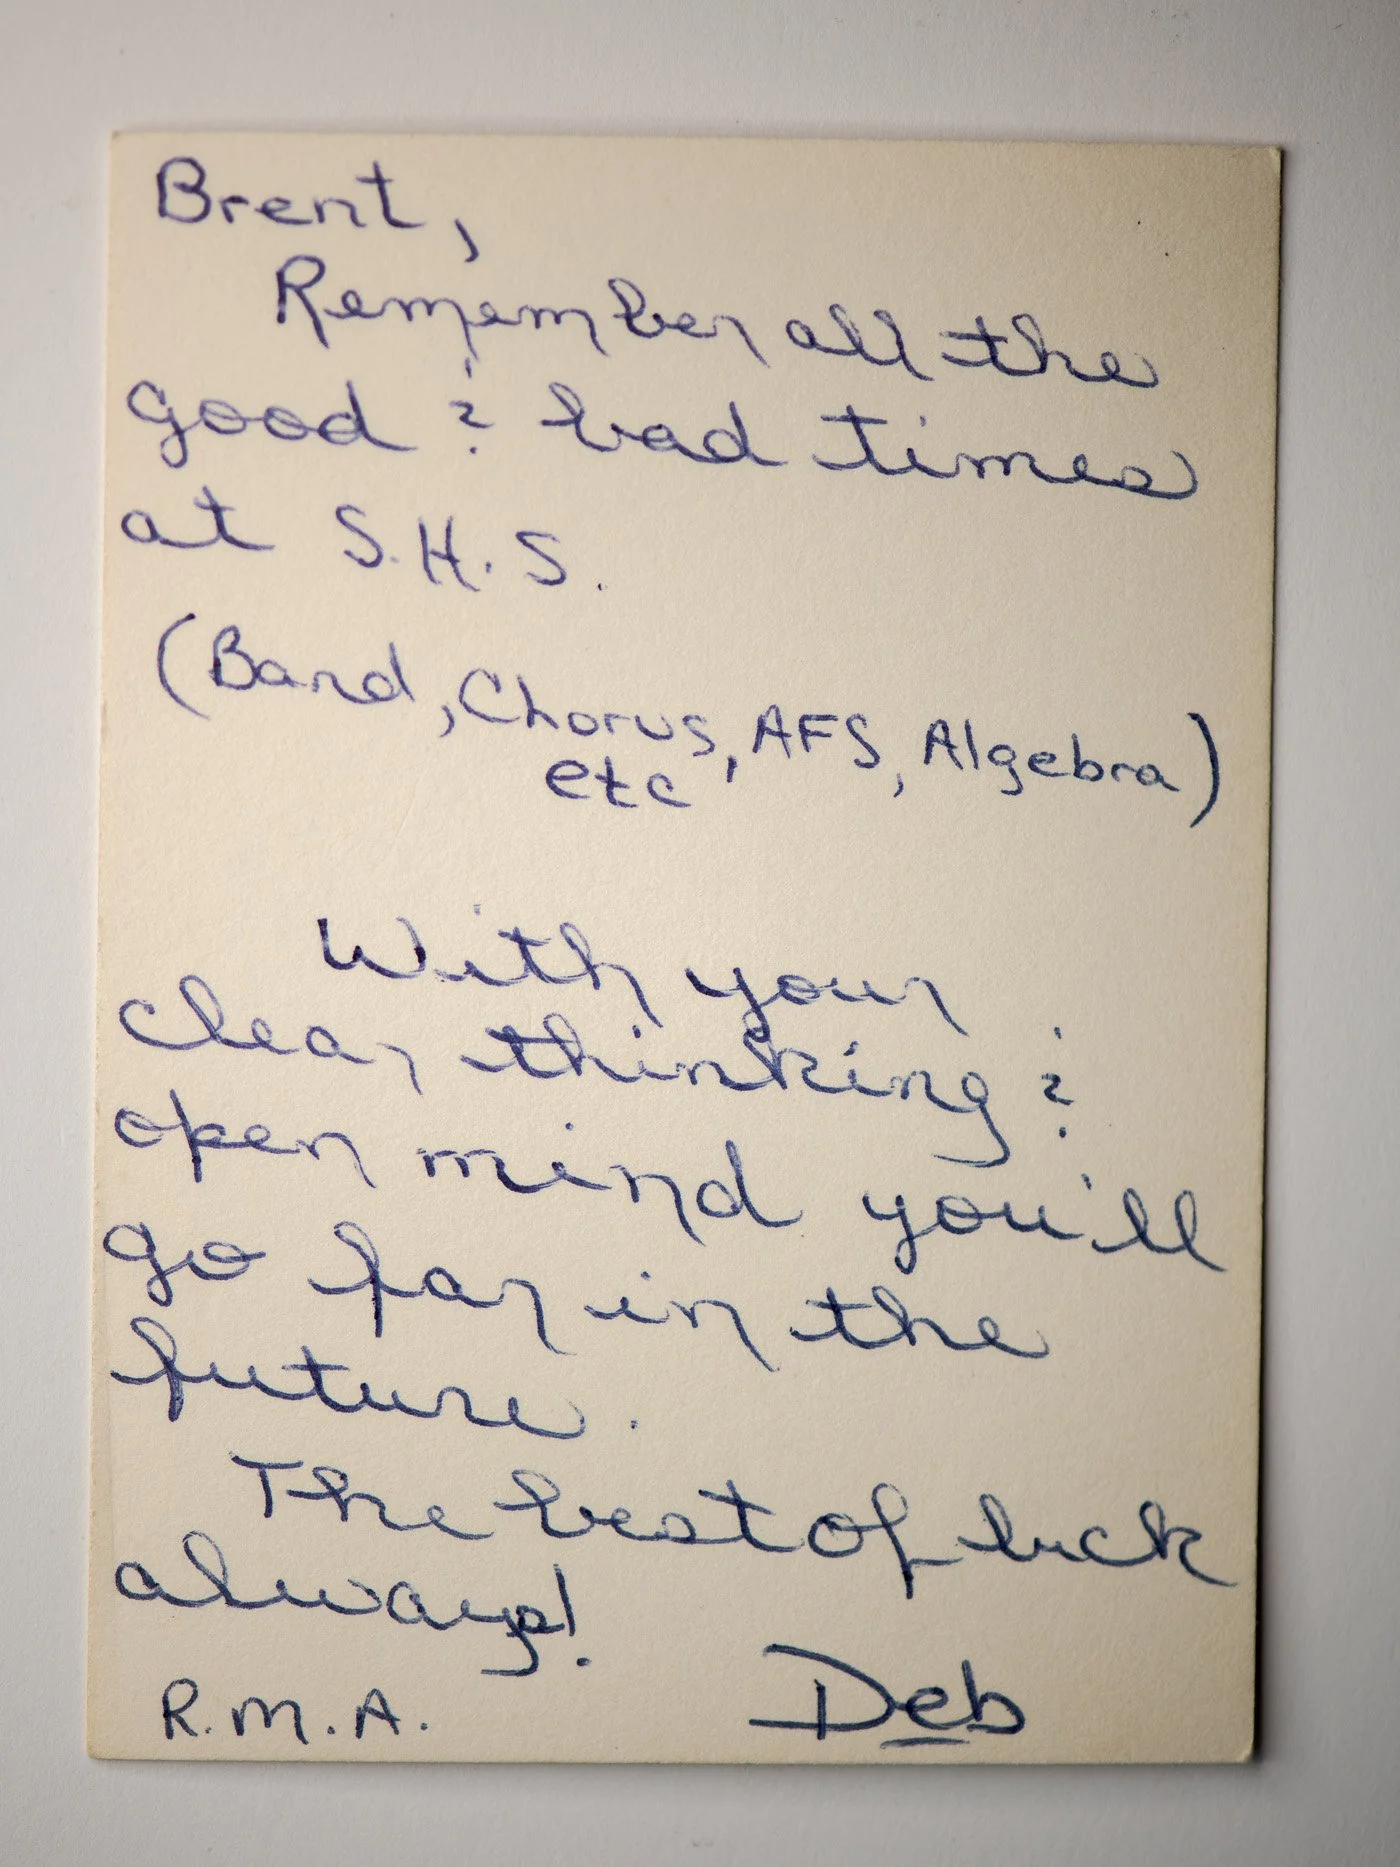 Brent,
Remember all the
good & bad times
at S.H.S.
(Band, Chorus, AFS, Algebra)
etc
With your
clear thinking &
open mind you'll
go far in the
future.
The best of luck
always!
R.M.A. Deb